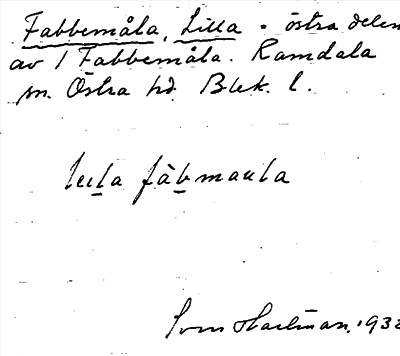 Fabbemåla, Lilla - östra delen
av 1 Fabbemåla. Ramdala
sn. Östra hd. Blek. l.
lilla fabmaala
Sven Hartman, 193